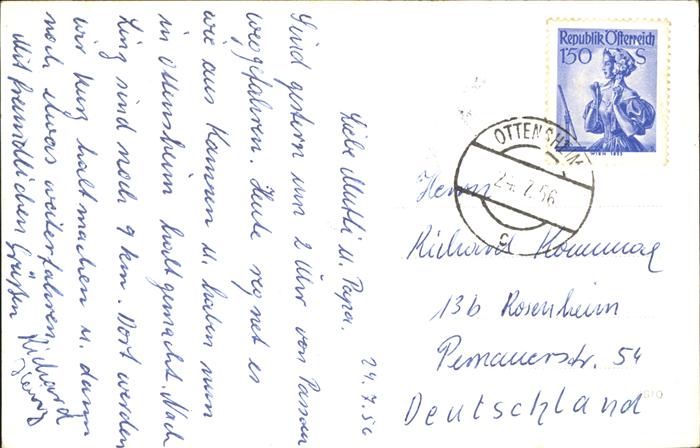 24.7.56
Liebe Mutti u. Papa.
Sind gestern um 2 Uhr von Passau
weggefahren. Heute regnet es
wie aus Kannen u. haben nun
in Ottensheim halt gemacht. Nach
Linz sind noch 9 km. Dort werden
wir kurz halt machen u. dann
noch etwas weiterfahren.
Mit freundlichen Grüßen Richard
Republik Österreich
1'50 S
WIEN 1855
OTTENSHEIM
24.7.56
Herrn
Richard
13b Rosenheim
Pernauerstr. 54
Deutschland